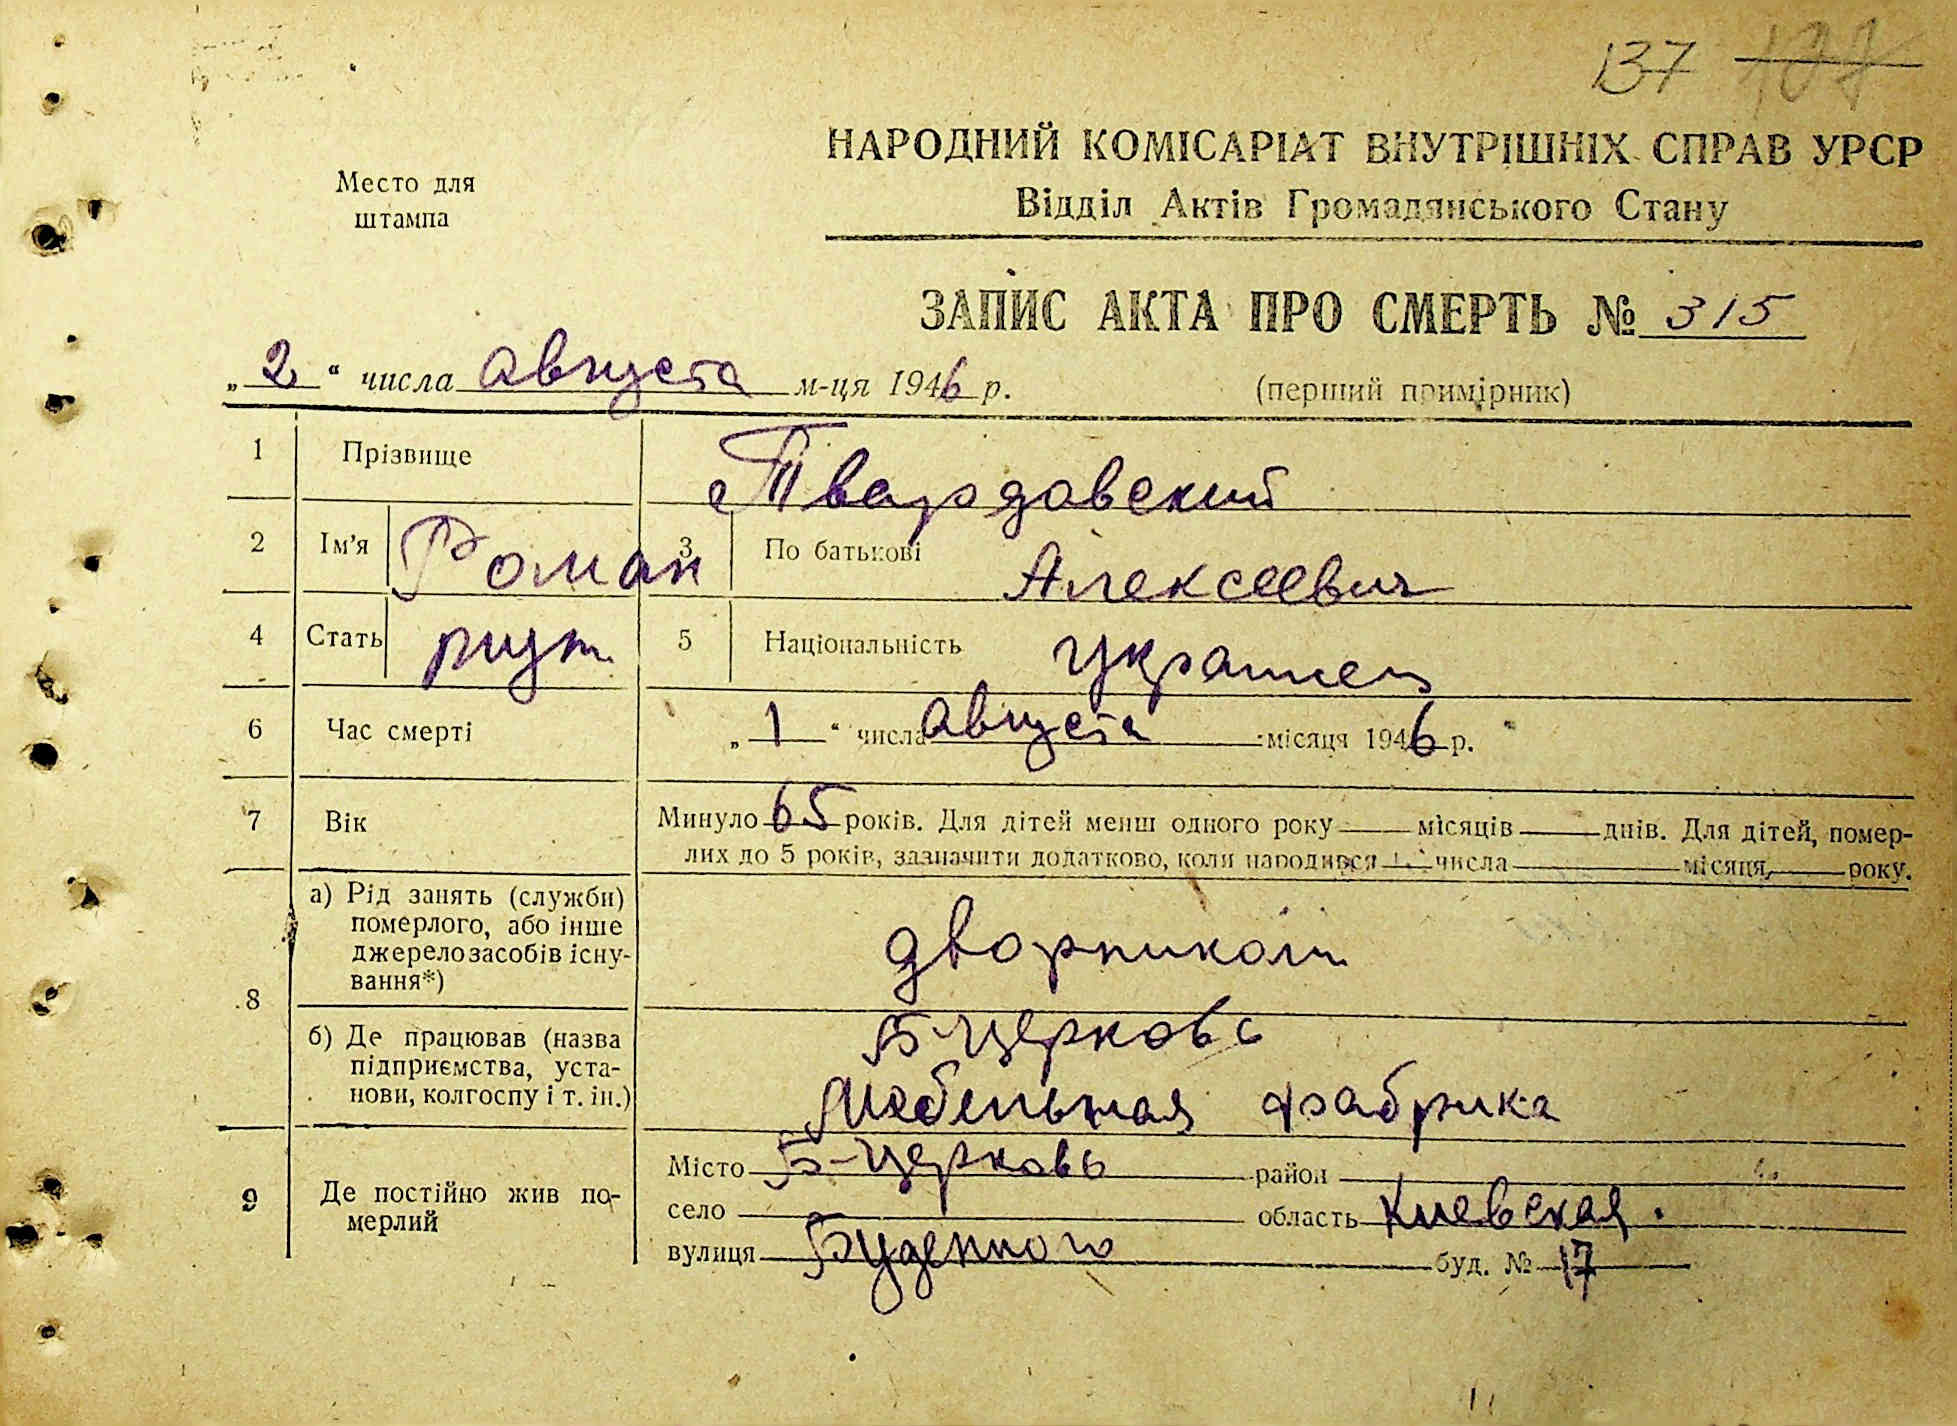 137 107
НАРОДНИЙ КОМІСАРІАТ ВНУТРІШНІХ СПРАВ УРСР
Відділ Актів Громадянського Стану
Место для
штампа
ЗАПИС АКТА ПРО СМЕРТЬ № 315
„ 2 “ числа августа м-ця 1946 р.
(перший примірник)
1 Прізвище Твардовский
2 Ім'я Роман 3 По батькові Алексеевич
4 Стать муж. 5 Національність украинец
6 Час смерті „ 1 “ числа августа місяця 1946 р.
7 Вік Минуло 65 років. Для дітей менш одного року місяців днів. Для дітей, помер-
лих до 5 років, зазначити додатково, коли народився числа місяця, року.
8 а) Рід занять (служби)
померлого, або інше
джерело засобів існу-
вання*)
дворником
б) Де працював (назва
підприємства, уста-
нови, колгоспу і т. ін.)
Б-Церковь
Мебельная фабрика
9 Де постійно жив по-
мерлий
Місто Б-Церковь район
село область Киевская.
вулиця Буденного буд. № 17